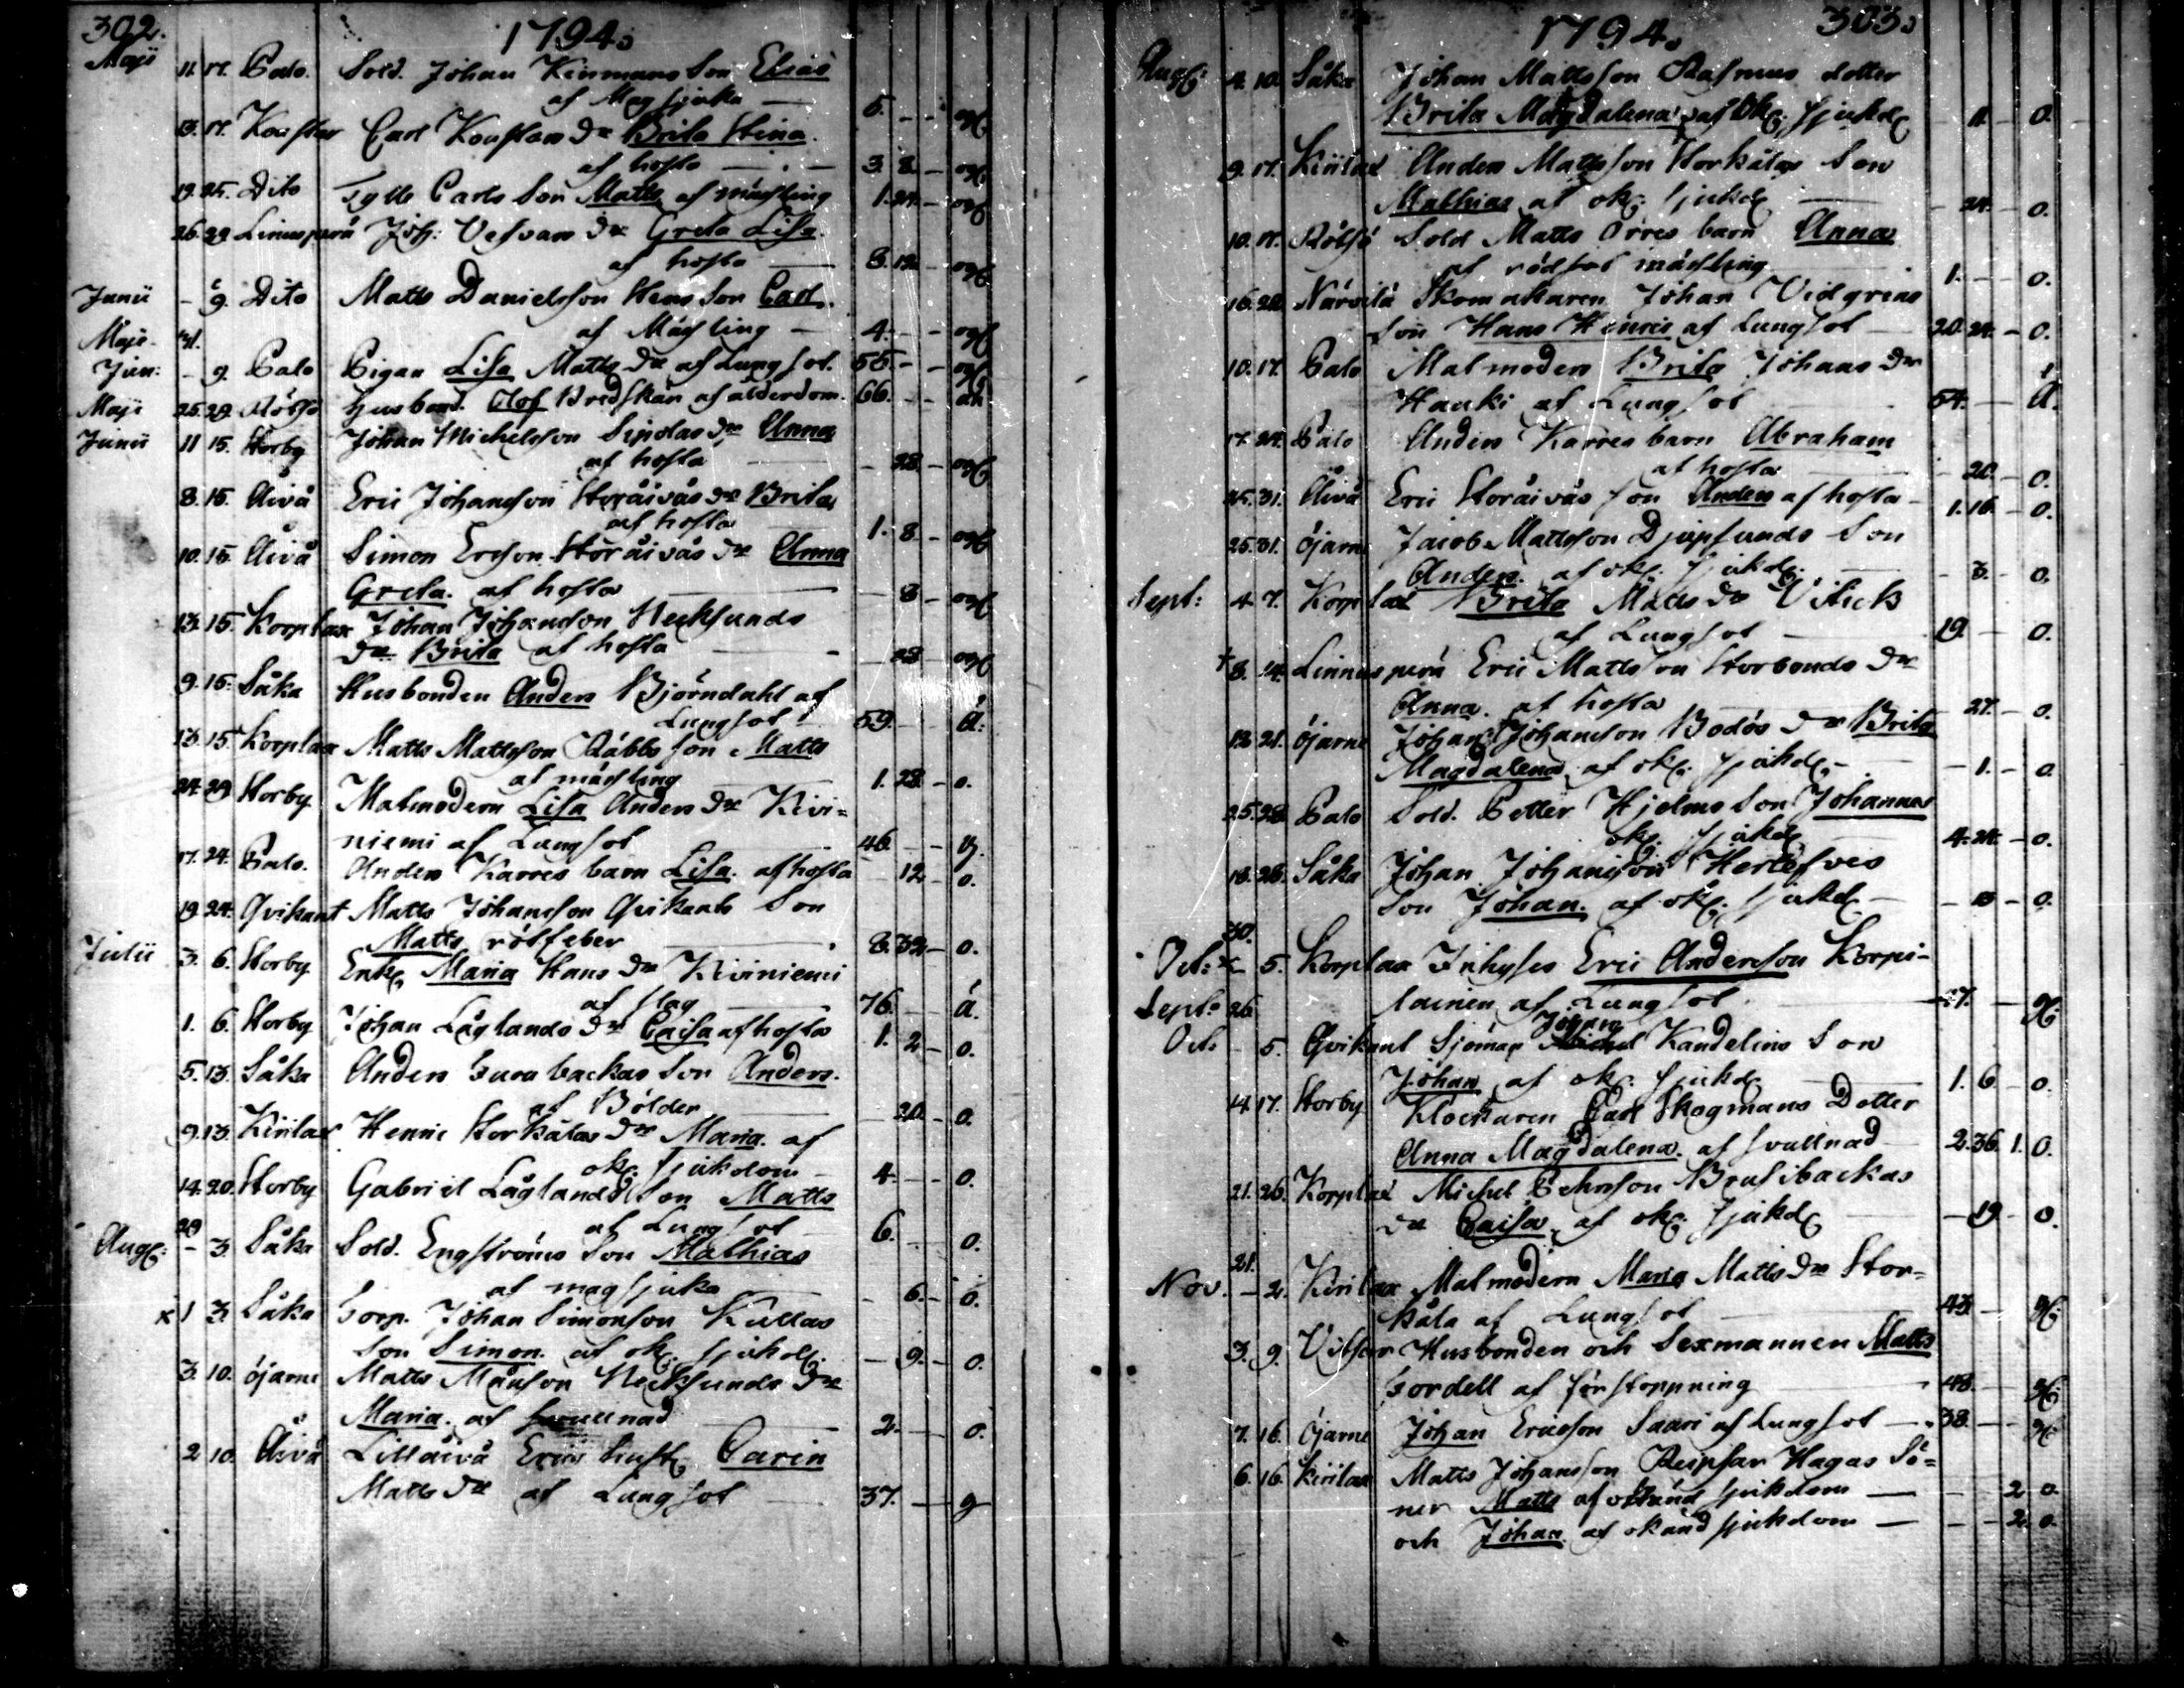 302.
1794.
Maji 11. 17. Palo. Sold. Johan Kinmans Son Elias
af Magsjuka 5. - - ogf.
13. 17. Kouflax Carl Kouflax dr Brita Stina
af hosta 3. 8. - ogf.
19. 25. Dito Tylle Carls Son Matts af mässling 1. 24. - ogf.
26. 29 Linnusperä Joh: Vefvars dr Greta Lisa.
af hosta 3. 12 - ogf.
Junii - 9. Dito Matts Danielsson Hens Son Carl.
af Mässling 4. - - ogf.
Maji 31.
Jun: - 9. Palo Pigan Lisa Matts dr af Lungsot. 55 - - ogf.
Maji 25. 29 Rötsö Husbond. Olof Bredskär af ålderdom. 66.
Junii 11 15. Storby Johan Michelsson Sipolas dr Anna
af hosta - 28 - ogf.
8. 15. Åivå Eric Johansson Storåivås dr Brita
af hosta 1. 8 - ogf.
10. 15. Åivå Simon Ersson Storåivås dr Anna
Greta. af hosta - 8 - ogf.
13. 15. Korplax Johan Johansson Necksunds
dr Brita af hosta - 28 - ogf.
9. 15. Såka Husbonden Anders Björndahl af
Lungsot 59. - å.
13. 15. Korplax Matts Mattsson Räbbs son Matts
af mässling 1. 28. - o.
24. 29 Storby Matmodern Lisa Anders dr Kivi-
niemi af Lungsot 46. - - g.
17. 24. Palo. Anders Karres barn Lisa. af hosta - 12 - o.
19. 24. Qvikant Matts Johansson Qvikants Son
Matts rötfeber 8. 32 - o.
Julii 3. 6. Storby Enk. Maria Hans dr Kiviniemi
af slag 76. - å.
1. 6. Storby Johan Låglands dr Caisa af hosta 1. 2 - o.
5. 13. Såka Anders Gurabackas Son Anders.
af Bölder - 20 - o.
9. 13. Kirilax Henric Storkålas dr Maria. af
ok. sjukdom 4. - - o.
14. 20. Storby Gabriel Låglands Son Matts
af Lungsot 6. - o.
29
Aug: - 3 Såka Sold. Engströms Son Mathias
af magsjuka - 6. - o.
x 1 3 Såka Corp. Johan Simonsson Kullas
Son Simon. af ok. sjukd. - 9. - o.
3. 10. Öjarne Matts Månsson Necksunds dr
Maria. af svullnad 2. - o.
2 10. Åivå Lillåivå Erics hust. Carin
Matts dr af Lungsot 37. - g
1794. 303.
Aug: 4. 10. Såka Johan Mattsson Rasmus dotter
Brita Magdalena af ok. sjukd. - 11. - o.
9. 17. Kirilax Anders Mattsson Storkålas Son
Mathias af ok. sjukd. - 24. - o.
10. 17. Rötsö Sold Matts Örres barn Anna
af rödsot mässling 1. - o.
16. 24. Närvilä Skomakaren Johan Vidgrens
son Hans Henric af Lungsot 20. 24. - o.
10. 17. Palo Matmodern Brita Johans dr
Hauki af Lungsot 54. - å.
17. 24. Palo Anders Karres barn Abraham
af hosta - 20. - o.
25. 31. Åivå Eric Storåivås son Anders af hosta 1. 16. - o.
25. 31. Öjarne Jacob Mattsson Djupsunds Son
Anders. af ok. sjukd. - 3. - o.
Sept: 4 7. Korplax Brita Matts dr Vitick
af Lungsot 19. - o.
8. 14. Linnusperä Eric Mattsson Storbonds dr
Anna. af hosta - 27. - o.
12 21. Öjarne Johan Johansson Bodös dr Brita
Magdalena af ok. sjukd. - 1. - o.
25. 28. Palo Sold. Petter Hjelms Son Johannes
ok. sjukd. 4. 24. - o.
18. 28. Såka Johan Johansson Herlefves
Son Johan. af ok. sjukd. o.
30.
Oct: x - 5. Korplax Inhyses Eric Andersson Korpi-
Sept: 26 lainen af Lungsot
Oct: - 5. Qvikant Sjöman Johan Kandelins Son
Johan af ok. sjukd. 1. 6 - o.
14 17. Storby Klockaren Carl Skogmans Dotter
Anna Magdalena. af svullnad 2. 36. 1. o.
21. 26. Korplax Michel Pehrsson Brusibackas
dr Caisa af ok. sjukd. - 19 - o.
21.
Nov. - 2. Kirilax Matmodern Maria Matts dr Stor-
kåla af Lungsot 43. -
3. 9. Vitsar Husbonden och Sexmannen Matts
Cordell af förstoppning 48. -
7. 16. Öjarne Johan Ericsson Saari af Lungsot 38. -
6. 16. Kirilax Matts Johansson Reipsar Hagas Sö-
ner Matts af okänd sjukdom - - 2 o.
och Johan af okänd sjukdom - - 2. o.